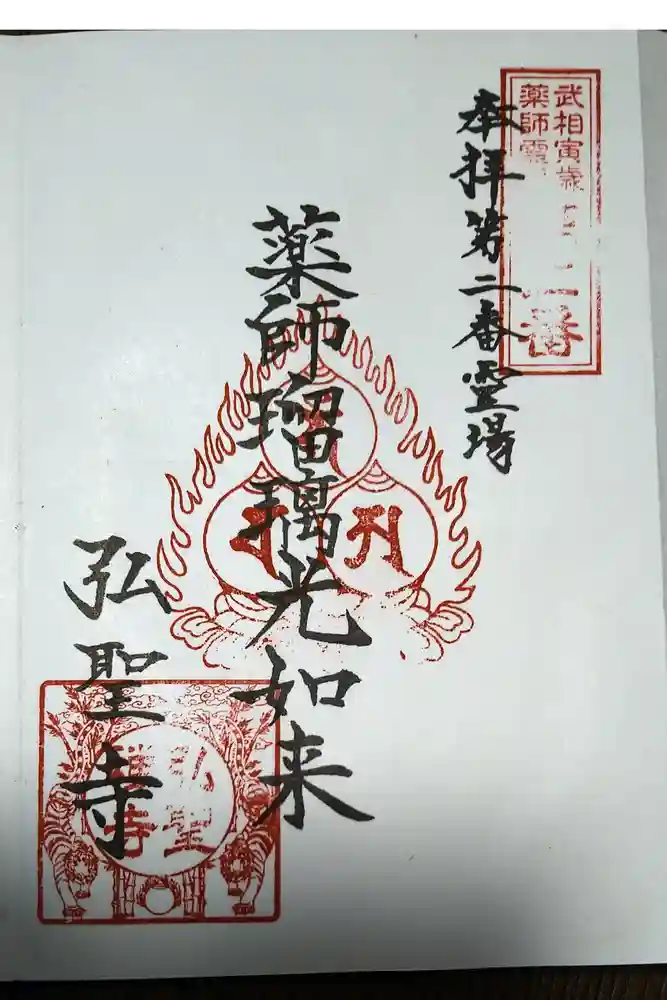 武相寅歳
薬師霊
二番
奉拝第二番霊場
薬師瑠璃光如来
弘聖寺
弘聖
寺